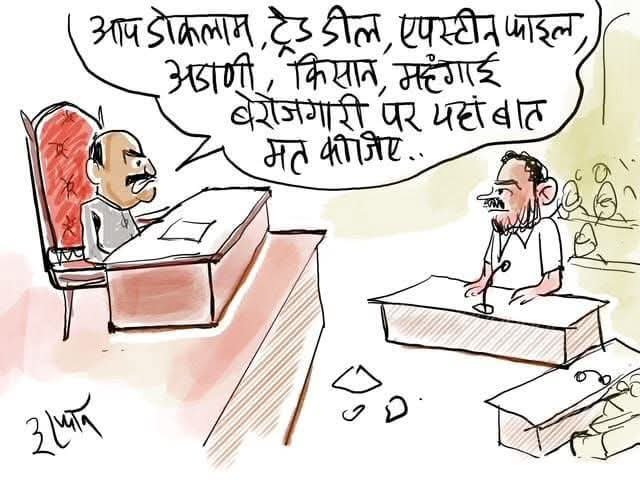 आप डोकलाम, ट्रेड डील, एपस्टीन फाइल,
अडाणी, किसान, महंगाई
बेरोजगारी पर यहां बात
मत कीजिए..